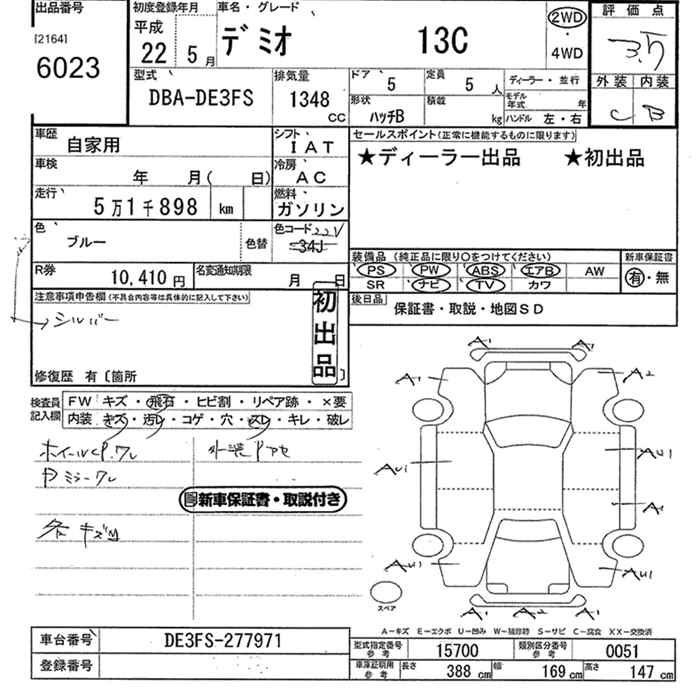 出品番号
[2164]
6023
初度登録年月
平成
22 5月
車名・グレード
デミオ 13C
2WD
・
4WD
評価点
3.5
外装 内装
C B
型式
DBA-DE3FS
排気量
1348
CC
ドア 5
定員 5 人
ディーラー・並行
形状 ハッチB
積載 kg
モデル年式 年
ハンドル 左・右
車歴
自家用
シフト
IAT
車検
年 月( 日)
冷房
AC
走行
5万1千898 km
燃料
ガソリン
色
ブルー
色替
色コード 22V
34J
R券
10,410円
名変通知期限
月 日
セールスポイント(正常に機能するものに限ります)
★ディーラー出品 ★初出品
装備品 (純正品に限り○をつけてください)
PS PW ABS エアB AW
SR ナビ TV カワ
新車保証書
有・無
後日品
保証書・取説・地図SD
注意事項申告欄(不具合内容等は具体的に記入して下さい)
シルバー
初出品
修復歴 有〔箇所
検査員記入欄
FW キズ・飛石・ヒビ割・リペア跡・×要
内装 キズ・汚れ・コゲ・穴・スレ・キレ・破レ
外装
キズ
新車保証書・取説付き
A1 A1
A1 A2
AU1 AU1
A1
AU1 AU1
A1 A1
スペア
A-キズ E-エクボ U-凹み W-補修跡 S-サビ C-腐食 XX-交換済
車台番号 DE3FS-277971
登録番号
型式指定番号参考 15700
類別区分番号参考 0051
車庫証明用参考 長さ 388 cm 幅 169 cm 高さ 147 cm